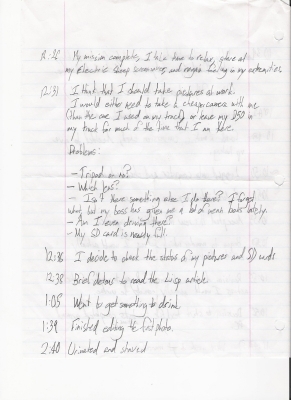 12:26 My mission complete, I take time to relax, place at
my electric lamp somewhere, and regain feeling in my extremities.
12:31 I think that I should take pictures at work.
I would either need to take a cheap camera with me
(than the one I used on my truck) or leave my D50 in
my truck for much of the time that I am there.
Problems:
- Tripod or no?
- Which lens?
- Isn't there something else I do there? I forget
what, but my boss has given me a lot of weak looks lately.
- Am I even driving there?
- My SD card is nearly full.
12:36 I decide to check the status of my pictures and SD cards
12:38 Brief detour to read the Lisp article
1:05 Went to get something to drink
1:39 Finished editing the first photo.
2:40 Urinated and shaved